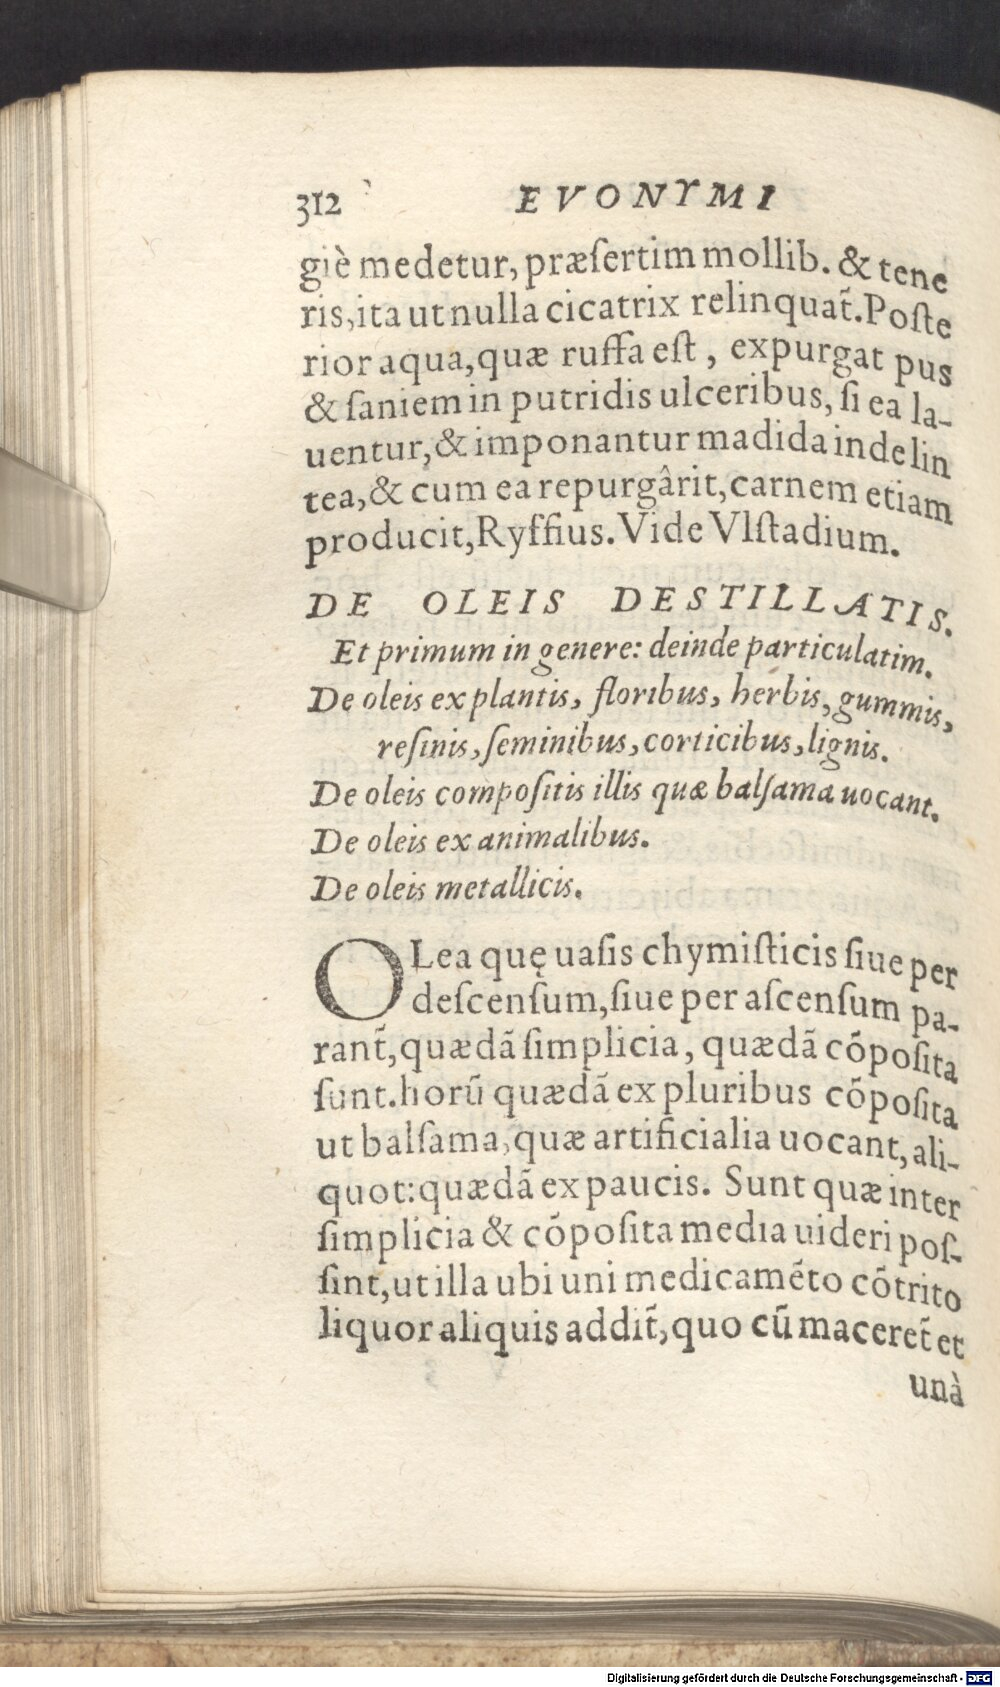 312 EVONYMI
giè medetur, præſertim mollib. & tene
ris, ita ut nulla cicatrix relinquat̃. Poſte
rior aqua, quæ ruffa eſt, expurgat pus
& ſaniem in putridis ulceribus, ſi ea la-
uentur, & imponantur madida inde lin
tea, & cum ea repurgârit, carnem etiam
producit, Ryffius. Vide Vlſtadium.
DE OLEIS DESTILLATIS.
Et primum in genere: deinde particulatim.
De oleis ex plantis, floribus, herbis, gummis,
reſinis, ſeminibus, corticibus, lignis.
De oleis compoſitis illis quæ balſama uocant.
De oleis ex animalibus.
De oleis metallicis.
OLea quę uaſis chymiſticis ſiue per
deſcenſum, ſiue per aſcenſum pa-
rant̃, quædã ſimplicia, quædã cõpoſita
ſunt. horũ quædã ex pluribus cõpoſita
ut balſama, quæ artificialia uocant, ali-
quot: quædã ex paucis. Sunt quæ inter
ſimplicia & cõpoſita media uideri poſ-
ſint, ut illa ubi uni medicamẽto cõtrito
liquor aliquis addit̃, quo cũ maceret̃ et
unà
Digitalisierung gefördert durch die Deutsche Forschungsgemeinschaft - DFG